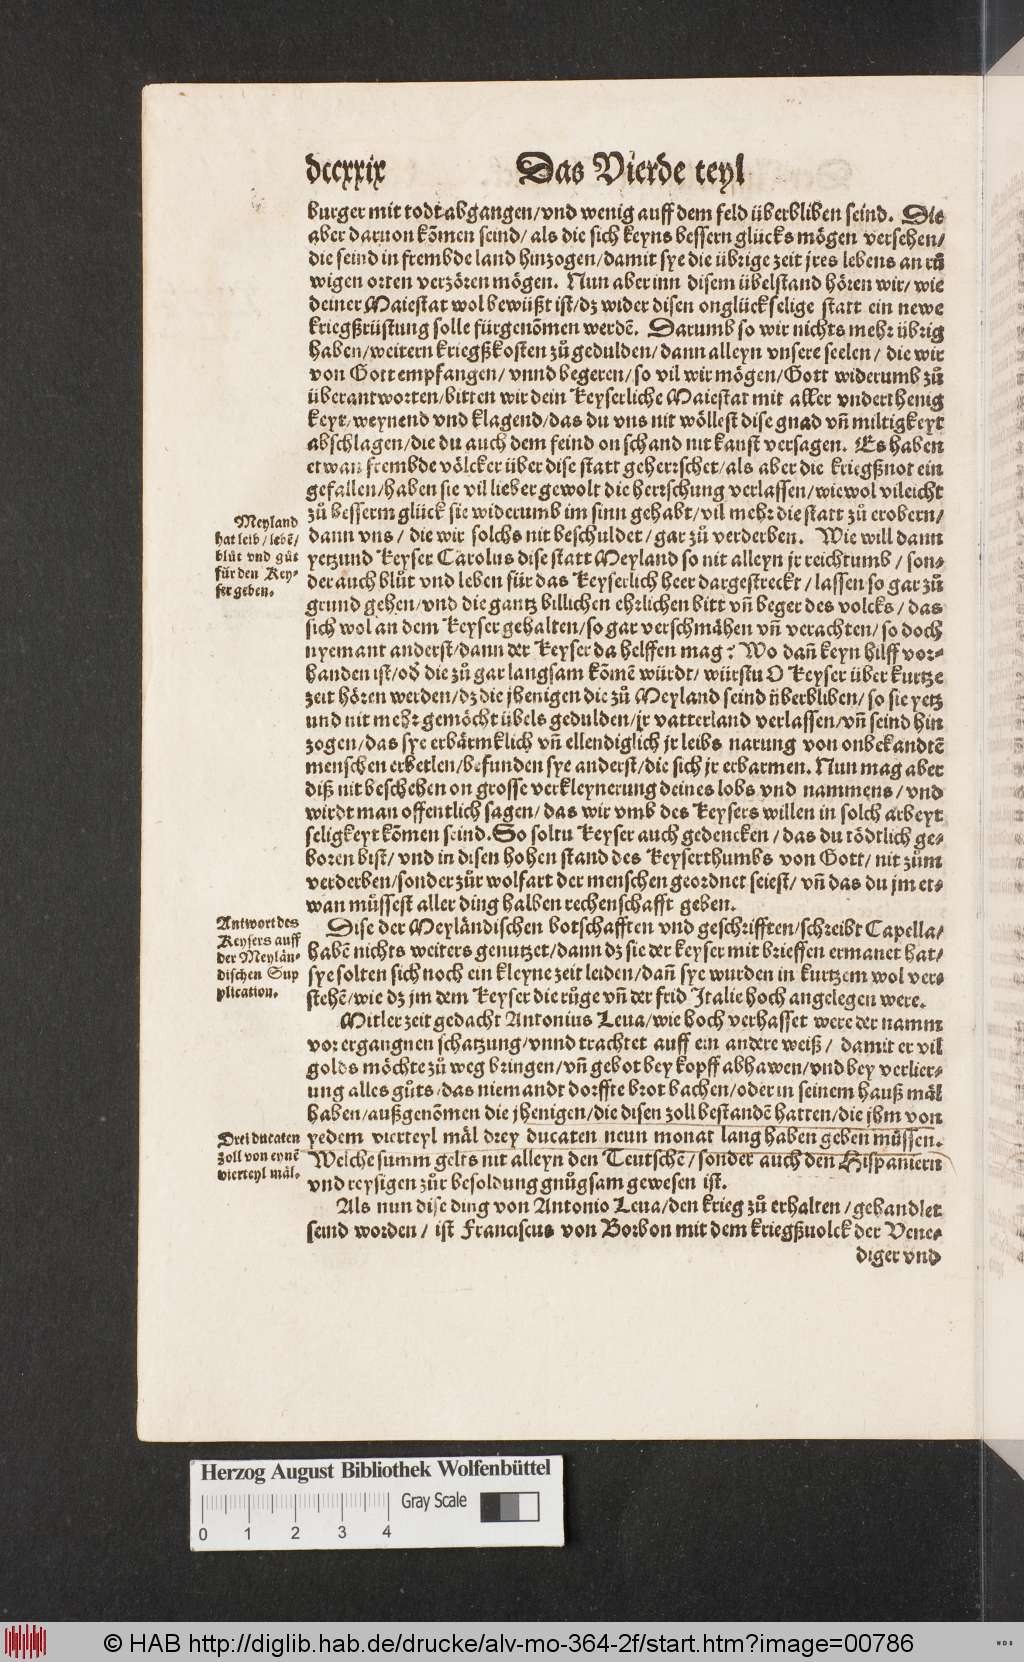 dccxxix Das Vierde teyl
burger mit todt abgangen/vnd wenig auff dem feld überbliben seind. Die
aber daruon kõmen seind/als die sich keyns bessern glücks mögen versehen/
die seind in frembde land hinzogen/damit sye die übrige zeit jres lebens an rů
wigen orten verzören mögen. Nun aber inn disem übelstand hören wir/wie
deiner Maiestat wol bewüßt ist/dz wider disen onglückselige statt ein newe
kriegßrüstung solle fürgenõmen werdē. Darumb so wir nichts mehr übrig
haben/weitern kriegßkosten zů gedulden/dann alleyn vnsere seelen/ die wir
von Gott empfangen/ vnnd begeren/so vil wir mögen/Gott widerumb zů
überantworten/bitten wir dein Keyserliche Maiestat mit aller vnderthenig
keyt/weynend vnd klagend/das du vns nit wöllest dise gnad vñ miltigkeyt
abschlagen/die du auch dem feind on schand nit kanst versagen. Es haben
etwan frembde völcker über dise statt geherrschet/als aber die kriegßnot ein
gefallen/haben sie vil lieber gewolt die herrschung verlassen/wiewol vileicht
zů besserm glück sie widerumb im sinn gehabt/vil mehr die statt zů erobern/
dann vns/ die wir solchs nit beschuldet/gar zů verderben. Wie will dann
yetzund Keyser Carolus dise statt Meyland so nit alleyn jr reichtumb/ son-
der auch blůt vnd leben für das Keyserlich heer dargestreckt/lassen so gar zů
grund gehen/vnd die gantz billichen ehrlichen bitt vñ beger des volcks/ das
sich wol an dem Keyser gehalten/so gar verschmähen vñ verachten/so doch
nyemant anderst/dann der Keyser da helffen mag? Wo dañ keyn hilff vor-
handen ist/oď die zů gar langsam kõmē würdt/würstu O Keyser über kurtze
zeit hören werden/dz die jhenigen die zů Meyland seind überbliben/so sie yetz
und nit mehr gemöcht übels gedulden/jr vatterland verlassen/vñ seind hin
zogen/das sye erbärmklich vñ ellendiglich jr leibs narung von onbekandtē
menschen erbetlen/befunden sye anderst/die sich jr erbarmen. Nun mag aber
diß nit beschehen on grosse verkleynerung deines lobs vnd nammens/vnd
wirdt man offentlich sagen/das wir vmb des Keysers willen in solch arbeyt
seligkeyt kõmen seind. So soltu Keyser auch gedencken/das du tödtlich ge-
boren bist/vnd in disen hohen stand des Keyserthumbs von Gott/nit zům
verderben/sonder zůr wolfart der menschen geordnet seiest/vñ das du jm et-
wan můssest aller ding halben rechenschafft geben.
Meyland
hat leib/lebē/
blůt vnd gůt
für den Key-
ser geben.
Dise der Meyländischen botschafften vnd geschrifften/schreibt Capella/
habē nichts weiters genutzet/dann dz sie der keyser mit brieffen ermanet hat/
sye solten sich noch ein kleyne zeit leiden/dañ sye wurden in kurtzem wol ver-
stehē/wie dz jm dem Keyser die růge vñ der frid Italie hoch angelegen were.
Antwort des
Keysers auff
der Meylän-
dischen Sup
plication.
Mitler zeit gedacht Antonius Leua/wie hoch verhasset were der namm
vor ergangnen schatzung/vnnd trachtet auff ein andere weiß/ damit er vil
golds möchte zů weg bringen/vñ gebot bey kopff abhawen/vnd bey verlier-
ung alles gůts/das niemandt dorffte brot bachen/oder in seinem hauß mäl
haben/außgenõmen die jhenigen/die disen zoll bestandē hatten/die jhm von
yedem vierteyl mäl drey ducaten neun monat lang haben geben müssen.
Welche summ gelts nit alleyn den Teutschē/sonder auch den Hispaniern
vnd reysigen zůr besoldung gnůgsam gewesen ist.
Drei ducaten
zoll von eynē
vierteyl mäl.
Als nun dise ding von Antonio Leua/den krieg zů erhalten/gehandlet
seind worden/ ist Franciscus von Borbon mit dem kriegßuolck der Vene-
diger vnd
Herzog August Bibliothek Wolfenbüttel
Gray Scale
0 1 2 3 4
© HAB http://diglib.hab.de/drucke/alv-mo-364-2f/start.htm?image=00786